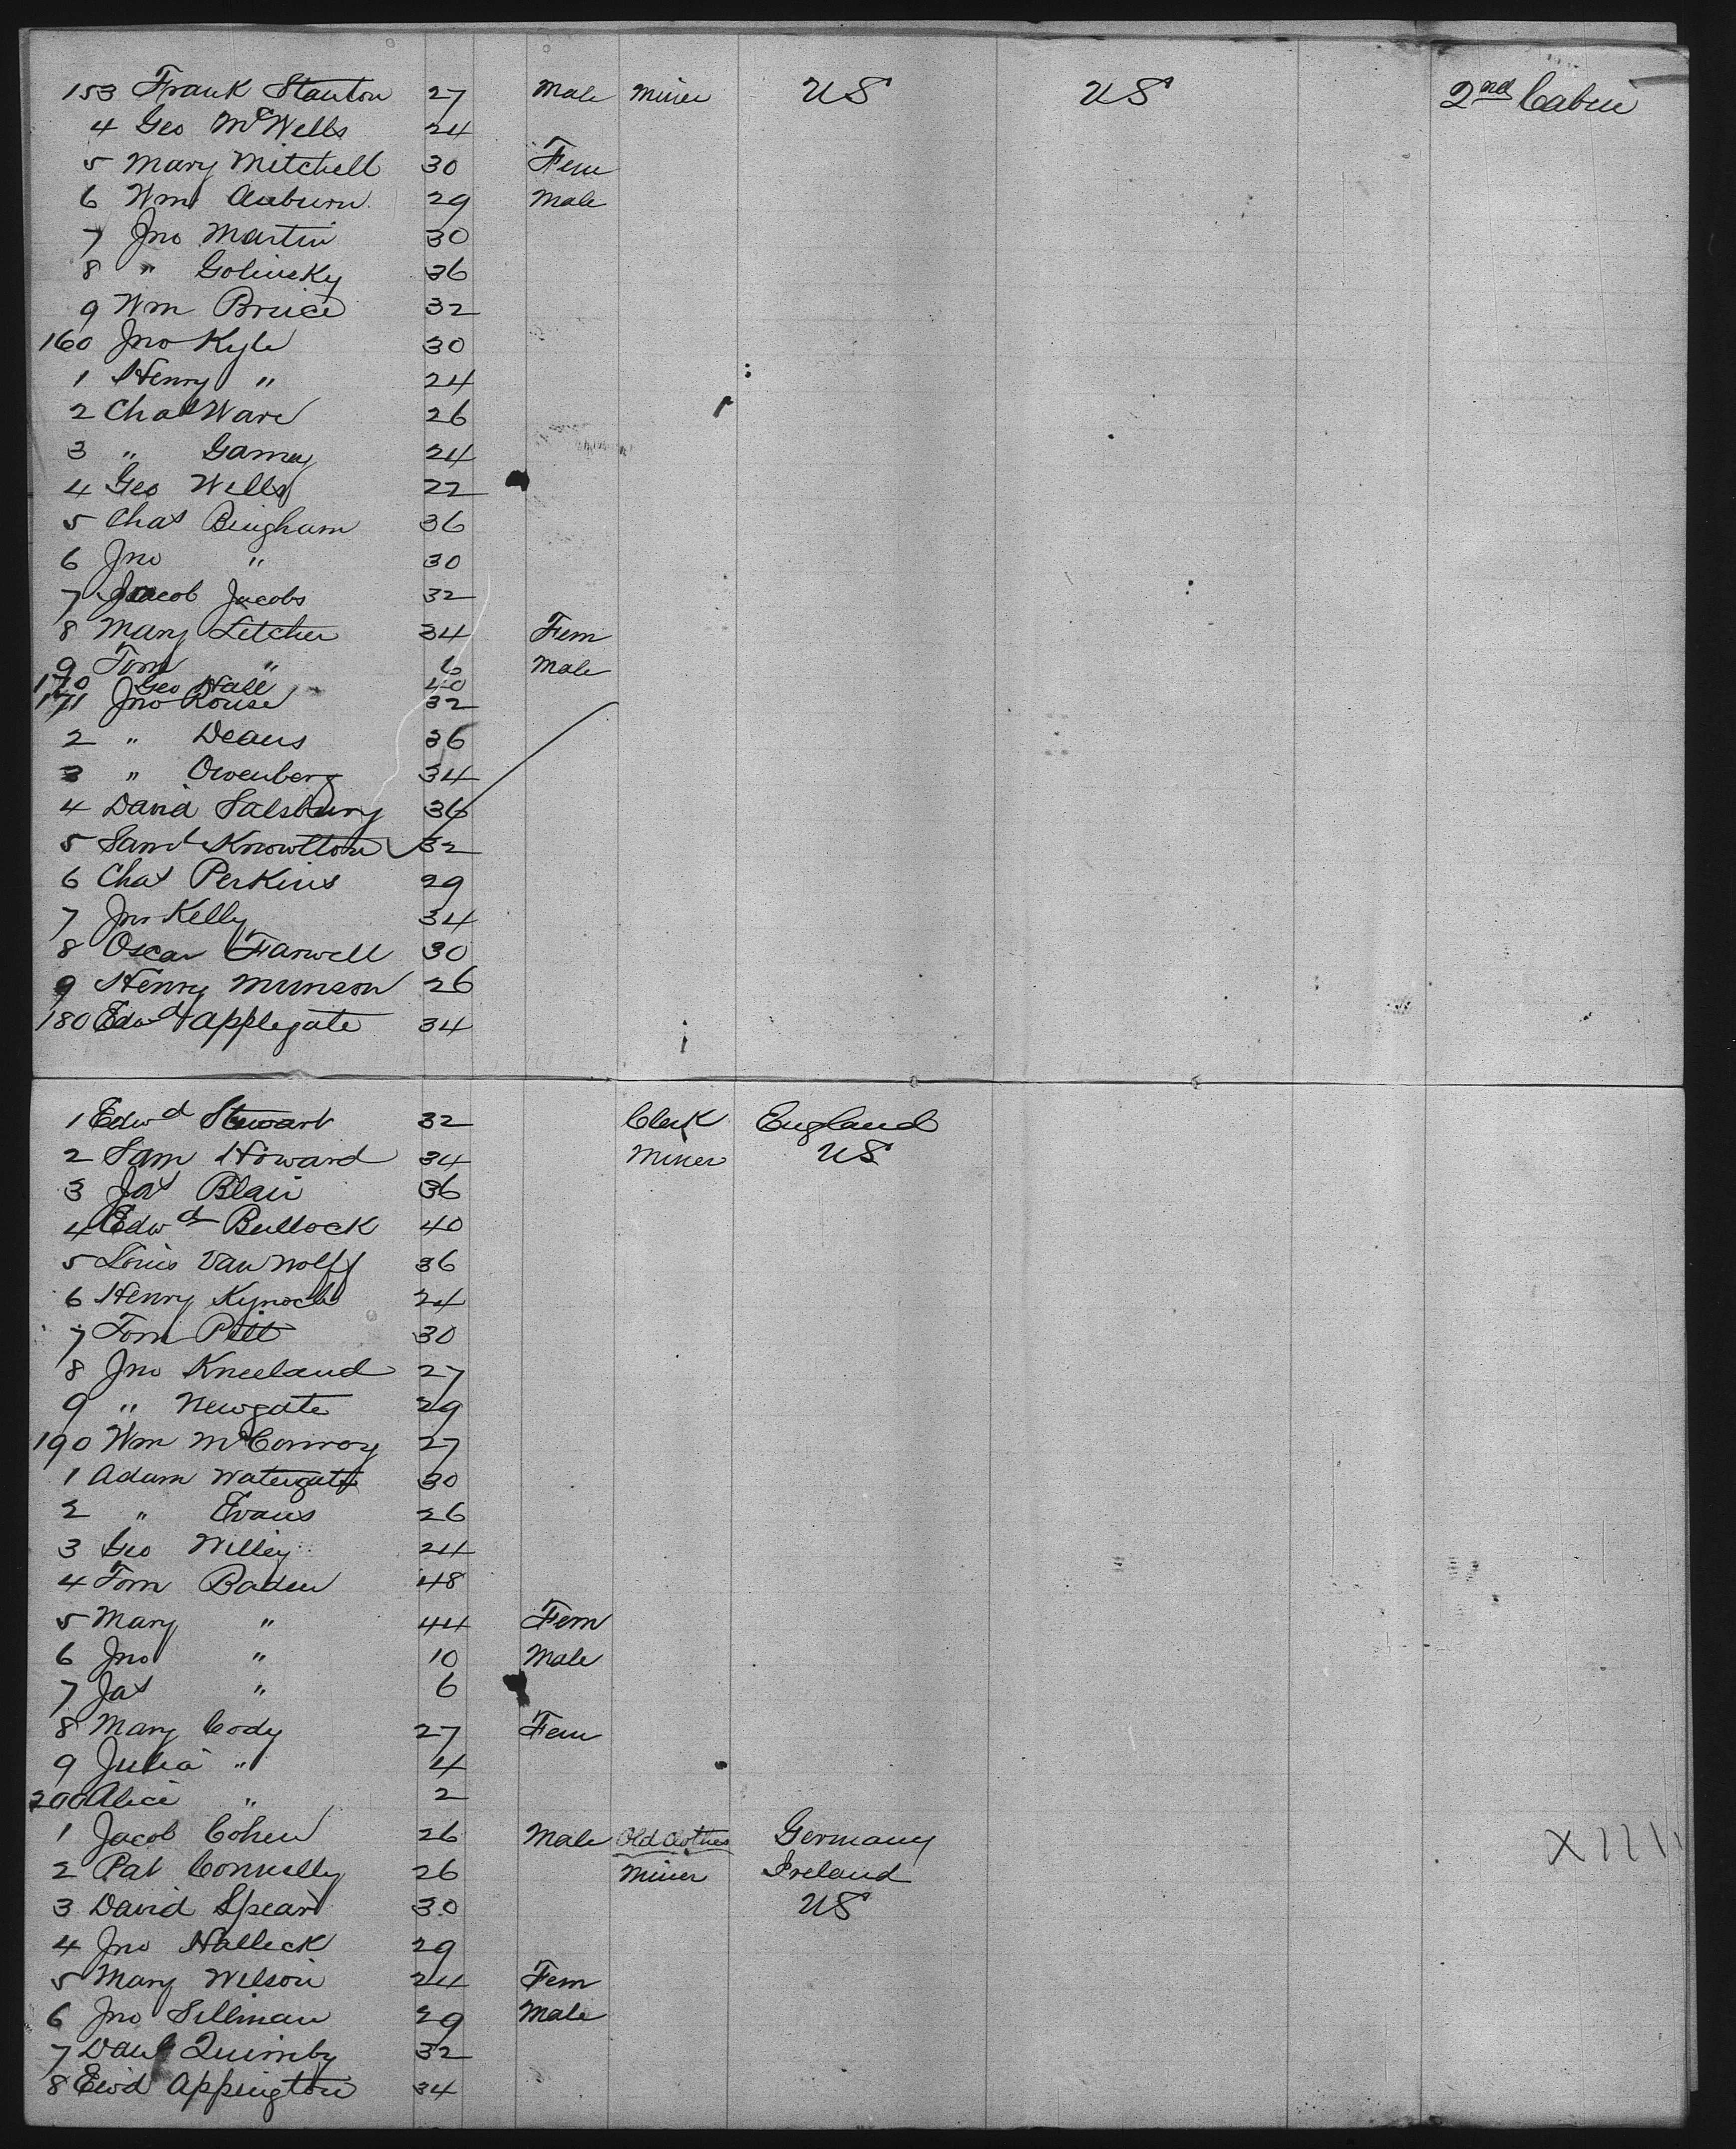 153 Frank Stanton 27 Male Miner US US 2nd Cabin
4 Geo McWells 24
5 Mary Mitchell 30 Fem
6 Wm Auburn 29 Male
7 Jno Martin 30
8 " Golinsky 36
9 Wm Bruice 32
160 Jno Kyle 30
1 Henry " 24
2 Chas Ware 26
3 " 24
4 Geo Wells 22
5 Chas Bingham 36
6 Jno " 30
7 Jacob Jacobs 32
8 Mary Letcher 34 Fem
9 Tom " 6 Male
170 Geo Hall 40
171 Jno Rouse 32
2 " Deans 36
3 " Owenberg 34
4 David Salsbury 36
5 Saml Knowlton 32
6 Chas Perkins 29
7 Jno Kelly 34
8 Oscar Farwell 30
9 Henry Munson 26
180 Edwd Applegate 34
1 Edwd Stewart 32 Clerk England
2 Sam Howard 34 Miner US
3 Jas Blair 36
4 Edwd Bullock 40
5 Louis Van Wolff 36
6 Henry Kynoch 24
7 Tom Pitt 30
8 Jno Kneeland 27
9 " Newgate 29
190 Wm McConroy 27
1 Adam Watergate 30
2 " Evans 26
3 Geo Willey 24
4 Tom Baden 48
5 Mary " 44 Fem
6 Jno " 10 Male
7 Jas " 6
8 Mary Cody 27 Fem
9 Julia " 4
200 Alice " 2
1 Jacob Cohen 26 Male Old Clothes Germany
2 Pat Connelly 26 Miner Ireland
3 David Spear 30 US
4 Jno Halleck 29
5 Mary Wilson 24 Fem
6 Jno Sillman 29 Male
7 Danl Quimby 32
8 Ewd Appington 34